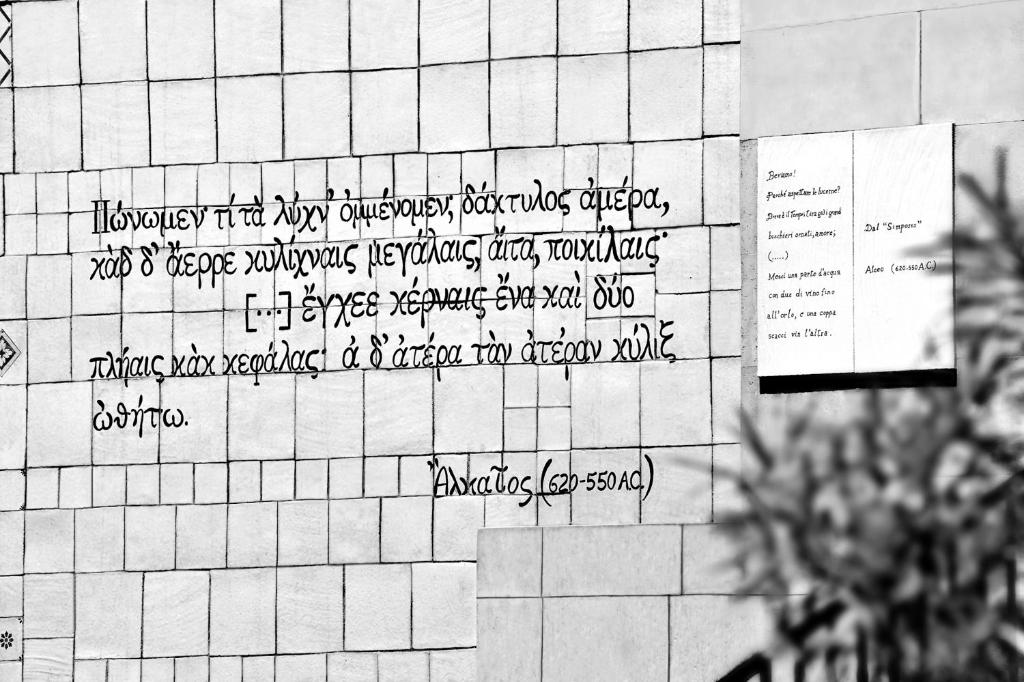 Πώνωμεν· τί τὰ λύχν' ὀμμένομεν; δάκτυλος ἀμέρα,
κὰδ δ' ἄερρε κυλίχναις μεγάλαις, ἄϊτα, ποικίλαις·
[...] ἔγχεε κέρναις ἔνα καὶ δύο
πλήαις κὰκ κεφάλας· ἀ δ' ἀτέρα τὰν ἀτέραν κύλιξ
ὠθήτω.
Ἀλκαῖος (620-550 A.C.)
Beviamo!
Perché aspettare le lucerne?
Breve il tempo. tira giù i grandi
bicchieri ornati, amore;
(.....)
Mesci una parte d'acqua
con due di vino fino
all'orlo, e una coppa
scacci via l'altra.
Dal "Simposio"
Alceo (620-550 A.C.)